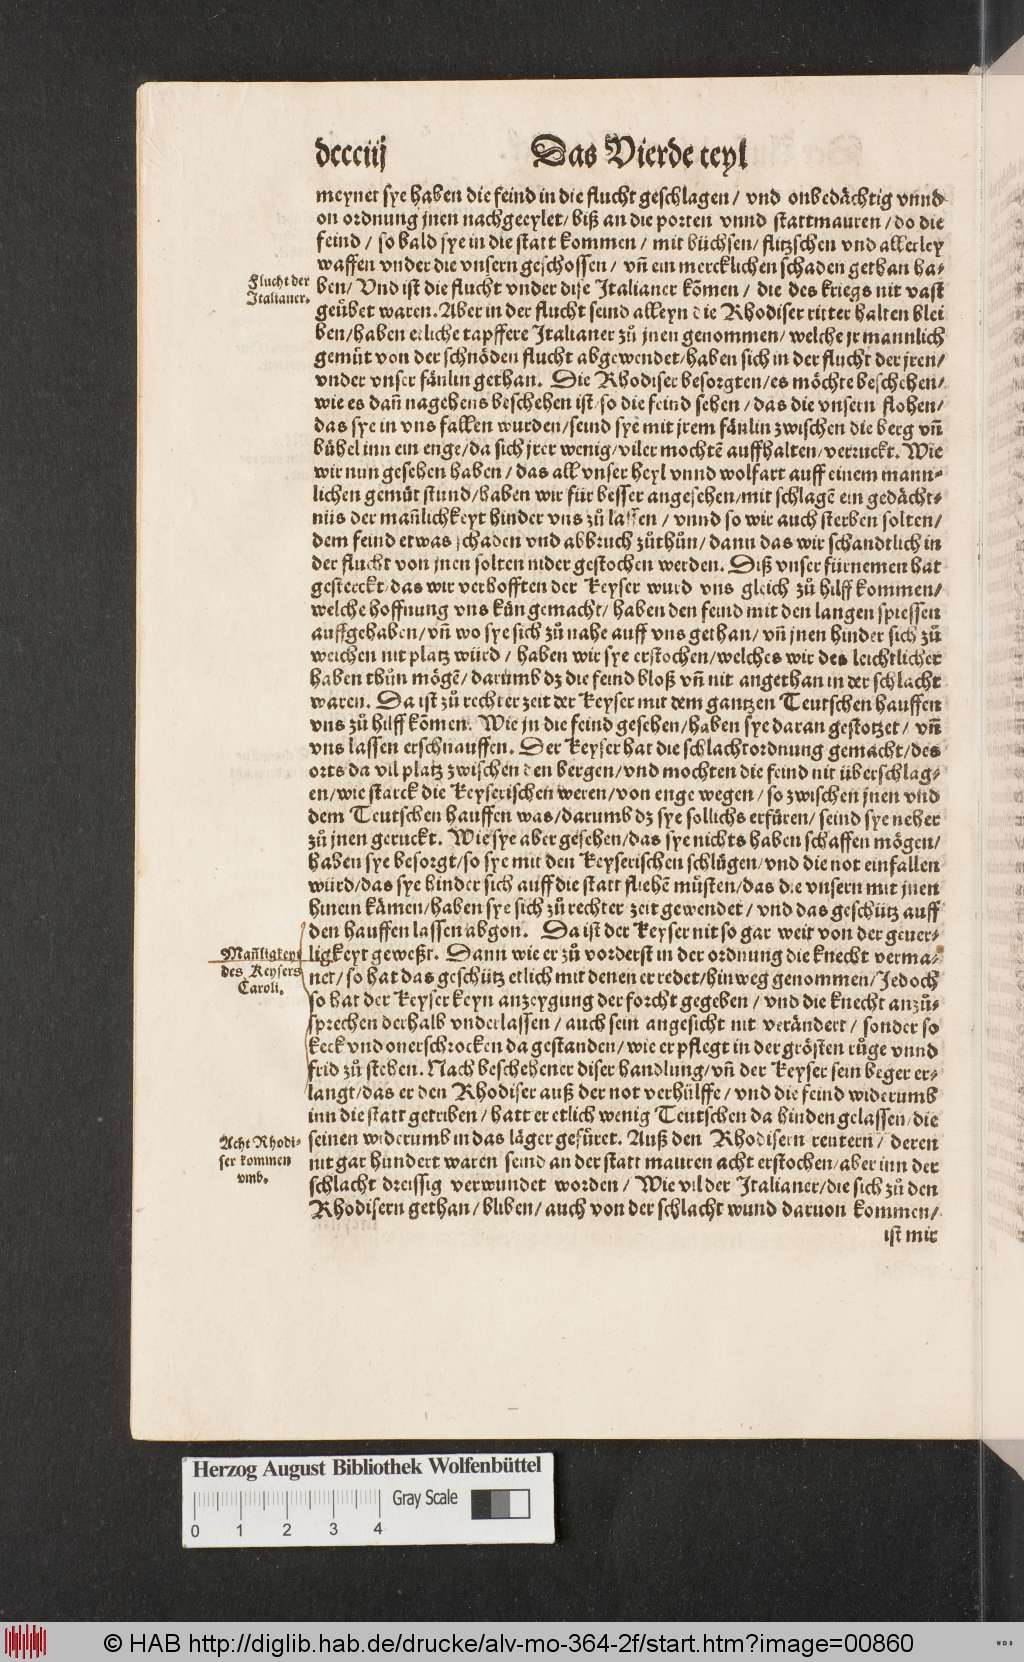 dccciij
Das Vierde teyl
meynet sye haben die feind in die flucht geschlagen / vnd onbedächtig vnnd
on ordnung jnen nachgeeylet / biß an die porten vnnd stattmauren / do die
feind / so bald sye in die statt kommen / mit büchsen / flitzschen vnd allerley
waffen vnder die vnsern geschossen / vñ ein mercklichen schaden gethan ha-
Flucht der
Italianer.
ben / Vnd ist die flucht vnder dise Italianer kõmen / die des kriegs nit vast
geübet waren. Aber in der flucht seind alleyn die Rhodiser ritter halten blei
ben / haben etliche tapffere Italianer zů jnen genommen / welche jr mannlich
gemüt von der schnöden flucht abgewendet / haben sich in der flucht der jren /
vnder vnser fänlin gethan. Die Rhodiser besorgten / es möchte beschehen /
wie es dañ nagehens beschehen ist / so die feind sehen / das die vnsern flohen /
das sye in vns fallen wurden / seind syẽ mit jrem fänlin zwischen die berg vñ
bühel inn ein enge / da sich jrer wenig / viler mochtẽ auffhalten / verruckt. Wie
wir nun gesehen haben / das all vnser heyl vnnd wolfart auff einem mann-
lichen gemüt stund / haben wir für besser angesehen / mit schlagẽ ein gedächt-
nüs der mañlichkeyt hinder vns zů lassen / vnnd so wir auch sterben solten /
dem feind etwas schaden vnd abbruch zůthůn / dann das wir schandtlich in
der flucht von jnen solten nider gestochen werden. Diß vnser fürnemen hat
gesterckt / das wir verhofften der Keyser wurd vns gleich zů hilff kommen /
welche hoffnung vns kün gemacht / haben den feind mit den langen spiessen
auffgehaben / vñ wo sye sich zů nahe auff vns gethan / vñ jnen hinder sich zů
weichen nit platz würd / haben wir sye erstochen / welches wir des leichtlicher
haben thůn mögẽ / darumb dz die feind bloß vñ nit angethan in der schlacht
waren. Da ist zů rechter zeit der Keyser mit dem gantzen Teutschen hauffen
vns zů hilff kõmen. Wie jn die feind gesehen / haben sye daran gestotzet / vñ
vns lassen erschnauffen. Der Keyser hat die schlachtordnung gemacht / des
orts da vil platz zwischen den bergen / vnd mochten die feind nit überschlag-
en / wie starck die Keyserischen weren / von enge wegen / so zwischen jnen vnd
dem Teutschen hauffen was / darumb dz sye sollichs erfüren / seind sye neher
zů jnen geruckt. Wie sye aber gesehen / das sye nichts haben schaffen mögen /
haben sye besorgt / so sye mit den Keyserischen schlügen / vnd die not einfallen
würd / das sye hinder sich auff die statt fliehẽ müsten / das die vnsern mit jnen
hinein kämen / haben sye sich zů rechter zeit gewendet / vnd das geschütz auff
den hauffen lassen abgon. Da ist der Keyser nit so gar weit von der geuer-
Mañligkeyt
des Keysers
Caroli.
ligkeyt geweßt. Dann wie er zů vorderst in der ordnung die knecht verma-
net / so hat das geschütz etlich mit denen er redet / hinweg genommen / Jedoch
so hat der Keyser keyn anzeygung der forcht gegeben / vnd die knecht anzů-
sprechen derhalb vnderlassen / auch sein angesicht nit verändert / sonder so
keck vnd onerschrocken da gestanden / wie er pflegt in der grösten růge vnnd
frid zů stehen. Nach beschehener diser handlung / vñ der Keyser sein beger er-
langt / das er den Rhodiser auß der not verhülffe / vnd die feind widerumb
inn die statt getriben / hatt er etlich wenig Teutschen da hinden gelassen / die
Acht Rhodi-
ser kommen
vmb.
seinen widerumb in das läger gefüret. Auß den Rhodisern reutern / deren
nit gar hundert waren seind an der statt mauren acht erstochen / aber inn der
schlacht dreissig verwundet worden / Wie vil der Italianer / die sich zů den
Rhodisern gethan / bliben / auch von der schlacht wund daruon kommen /
ist mir
Herzog August Bibliothek Wolfenbüttel
Gray Scale
0 1 2 3 4
© HAB http://diglib.hab.de/drucke/alv-mo-364-2f/start.htm?image=00860